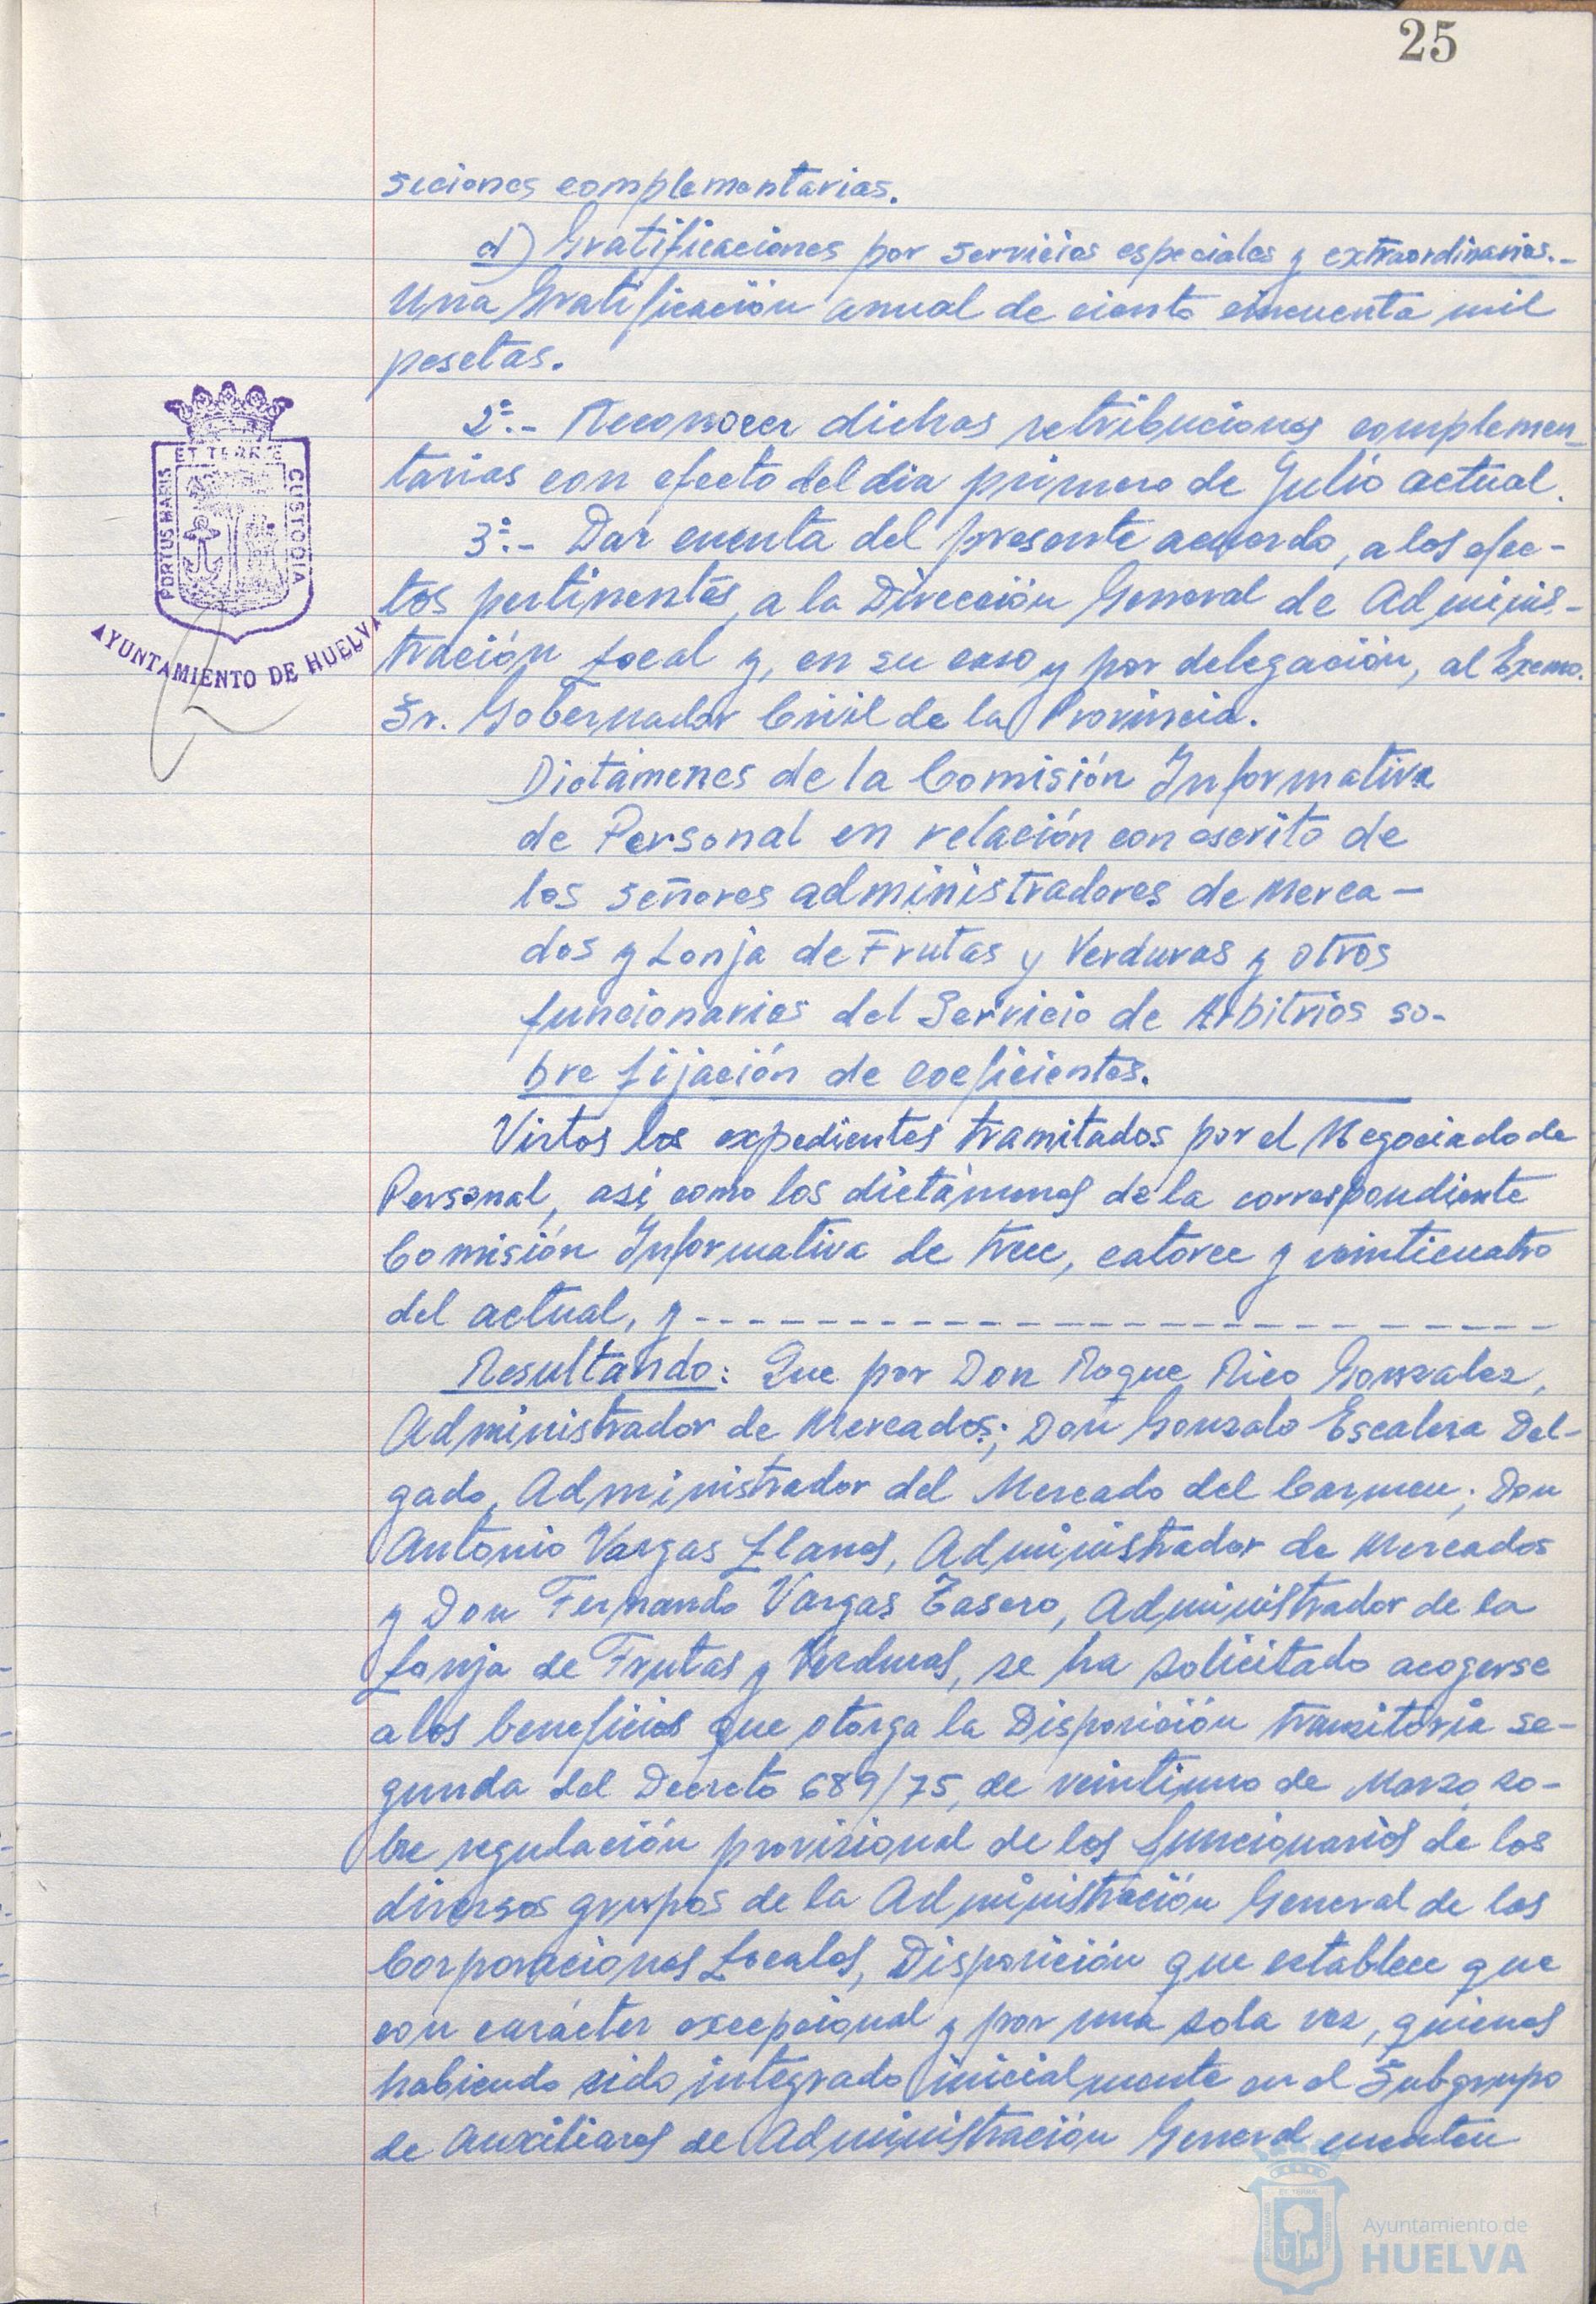 25
siciones complementarias.
d) Gratificaciones por servicios especiales y extraordinarios.-
Una Gratificación anual de ciento cincuenta mil
pesetas.
2º.- Reconocer dichas retribuciones complemen-
tarias con efecto del dia primero de Julio actual.
3º.- Dar cuenta del presente acuerdo, a los efec-
tos pertinentes, a la Dirección General de Adminis-
tración Local y, en su caso y por delegación, al Excmo.
Sr. Gobernador Civil de la Provincia.
ET TERRE
PORTUS MARIS
CUSTODIA
AYUNTAMIENTO DE HUELVA
Dictámenes de la Comisión Informativa
de Personal en relación con escrito de
los señores administradores de Merca-
dos y Lonja de Frutas y Verduras y otros
funcionarios del Servicio de Arbitrios so-
bre fijación de coeficientes.
Vistos los expedientes tramitados por el Negociado de
Personal, asi como los dictámenes de la correspondiente
Comisión Informativa de trece, catorce y veinticuatro
del actual, y - - - - - - - - - - - - - - - - - - - - -
Resultando: Que por Don Roque Rico Gonzalez,
Administrador de Mercados; Don Gonzalo Escalera Del-
gado, Administrador del Mercado del Carmen; Don
Antonio Vargas Llanes, Administrador de Mercados
y Don Fernando Vargas Tasero, Administrador de la
Lonja de Frutas y Verduras, se ha solicitado acogerse
a los beneficios que otorga la Disposición transitoria se-
gunda del Decreto 689/75, de veintiuno de Marzo, so-
bre regulación provisional de los funcionarios de los
diversos grupos de la Administración General de las
Corporaciones Locales, Disposición que establece que
con carácter excepcional y por una sola vez, quienes
habiendo sido integrado inicialmente en el Subgrupo
de Auxiliares de Administración General cuenten
Ayuntamiento de
HUELVA